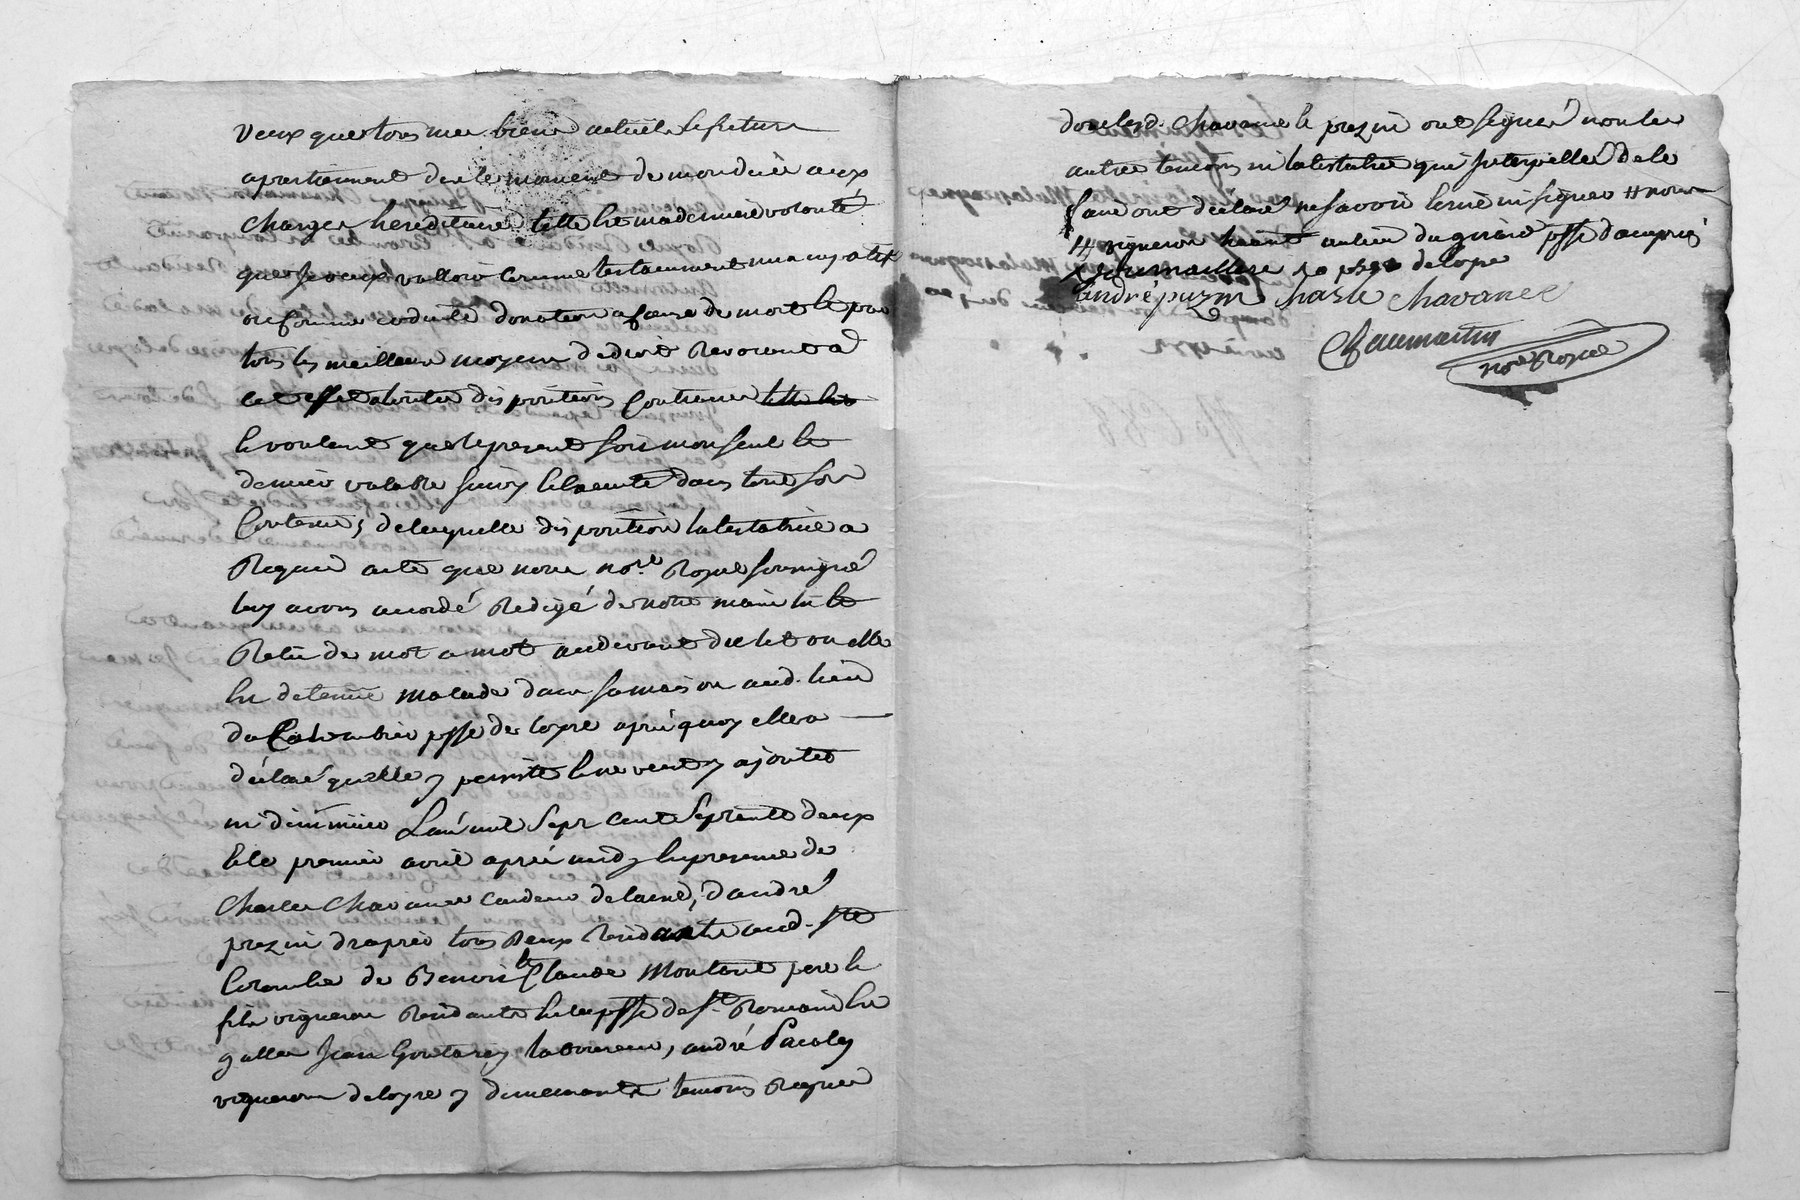 Veux que tous mes biens actuels & futurs
apartiennent des le moment de mon décès aux
charges hereditaires telle est ma derniere volonté
que je veux valloir comme testament nuncupatif
ou forme codicille donation a cause de mort & par
tous les meilleurs moyens de droit Revocant a
cet effet toutes dispositions Contraires telle est
& voulant que le present soit mon seul &
dernier valable suivy & executé dans tout son
Contenu, de laquelle disposition la testatrice a
Requis acte que nous no.re Royal soussigné
luy avons accordé Redigé de notre main lu &
Relu de mot a mot audevant du lit ou elle
est detenue malade dans sa maison aud. lieu
du Colombier psse de loyre apres quoy elle a
déclaré quelle y persiste & ne veut y ajouter
ni diminuer L'an mil sept cent septante deux
& le premier avril après midy en presence de
Charles Chavanes cardeur de laine, d'andré
prezin drapier tous deux Residants aud. Ste
Colombe de Benoit & Claude Montant pere &
fils vignerons Residants en la psse de St Romain en
galles Jean Goutarey laboureur, andré Pacaly
vigneron de loyre y demeurants temoins Requis
dont lesd. Chavanes & prezin ont signé non les
autres temoins ni la testatrice qui interpellés de le
faire ont déclaré ne savoir écrire ni signer # nous
# vigneron habitant au lieu du giraud psse d'ampuis
de loyre
André puzin Charle Chavanes
no.re Royal